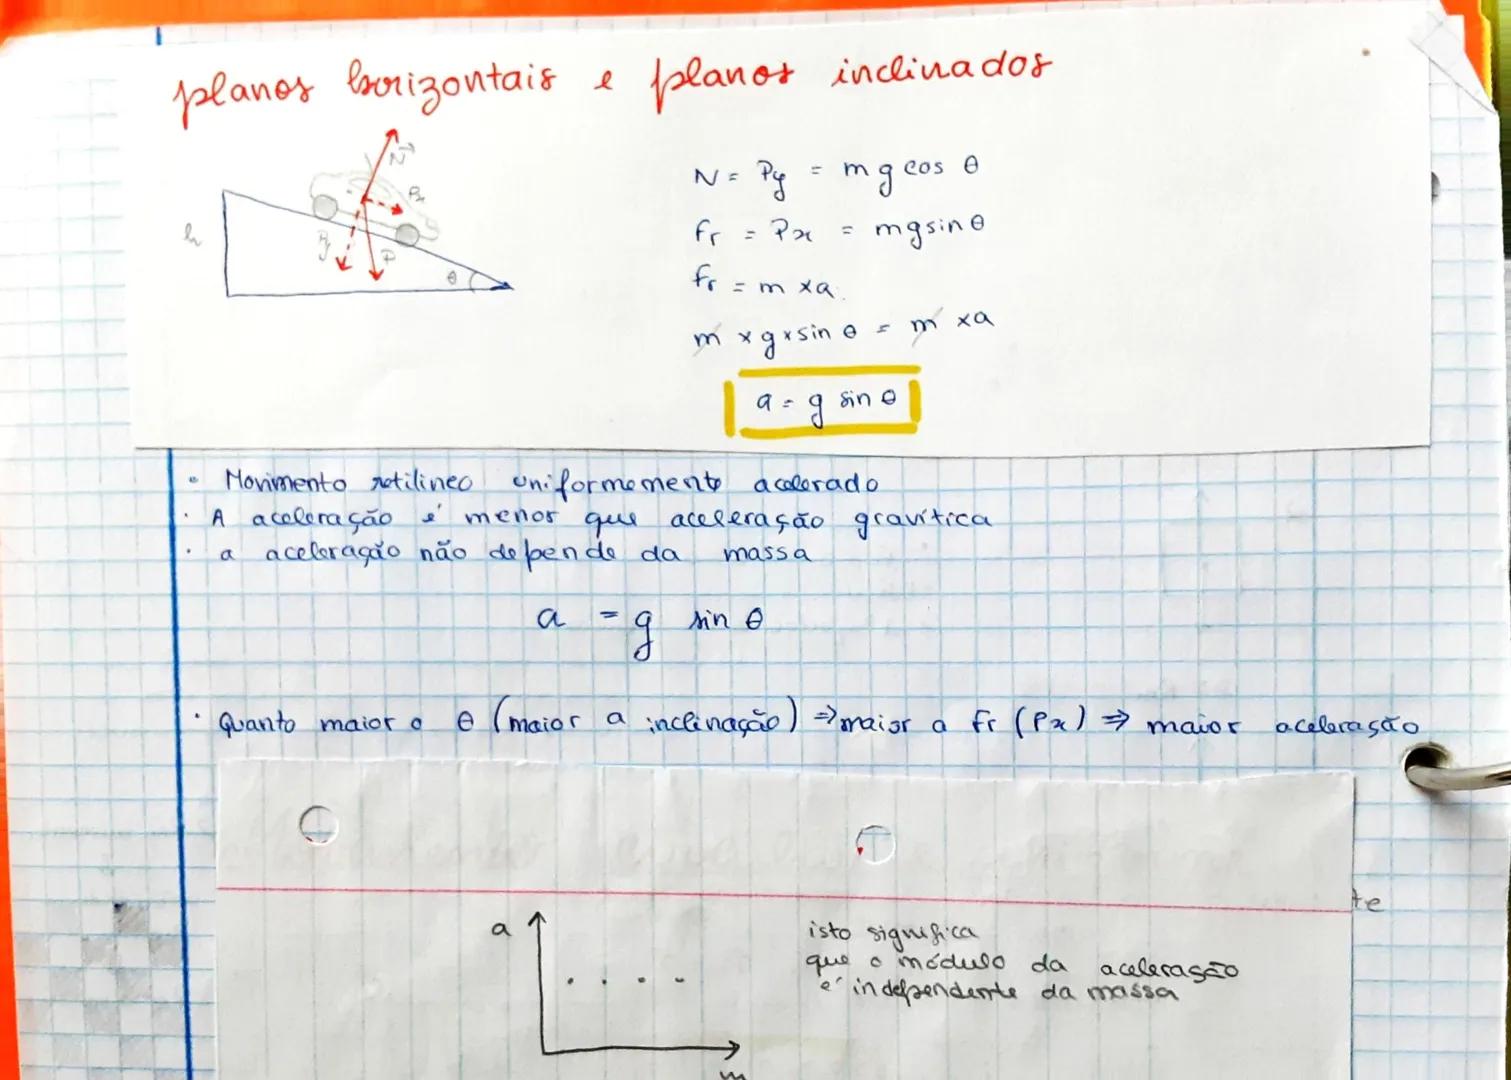 planos horizontais e planos inclinados
N
Px
h
Py
P
θ
N = Py = mg cos θ
Fr = Px = mg sin θ
Fr = m × a
m × g × sin θ = m × a
a = g sin θ
• Movimento retilineo uniformemente acelerado
• A aceleração é menor que aceleração gravítica
• a aceleração não depende da massa
a = g sin θ
• Quanto maior o θ (maior a inclinação) ⇒ maior a Fr (Px) ⇒ maior aceleração
te
a
isto significa
que o módulo da aceleração
é independente da massa
m